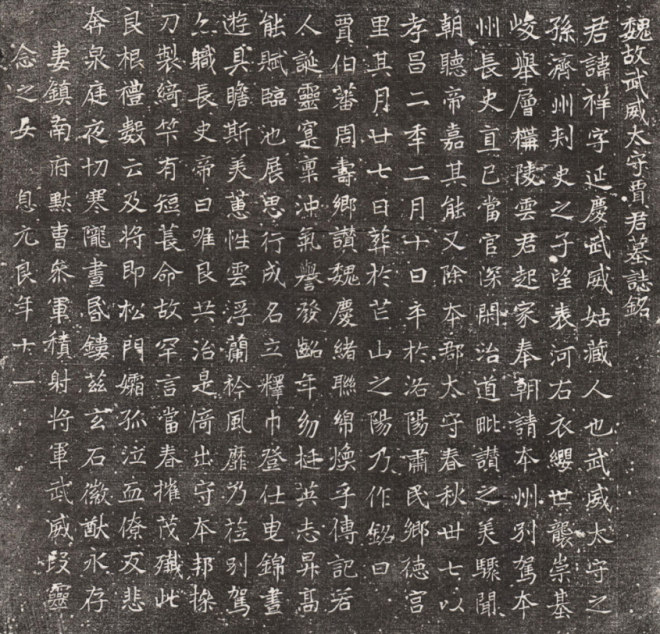 魏故武威太守賈君墓誌銘
君諱祥字延慶武威姑藏人也武威太守之
孫濟州刺史之子望表河右衣纓世襲崇基
峻舉層構陵雲君起家奉朝請本州別駕本
州長史直已當官深閑治道毗讃之美驟聞
朝聽帝嘉其能又除本郡太守春秋卌七以
孝昌二年二月十日卒於洛陽肅民鄉德宮
里其月廿七日葬於芒山之陽乃作銘曰
賈伯蕃周壽鄉讃魏慶緒聯綿煥乎傳記若
人誕靈寔稟沖氣譽發齠年幼挺英志昇高
能賦臨池展思行成名立釋巾登仕曳錦晝
遊具瞻斯美蕙性雲浮蘭衿風靡乃莅別駕
亦軄長史帝曰唯良共治是倚出守本邦操
刀製綺竿有短萇命故罕言當春摧茂殲此
良根禮數云及將即松門孀孤泣血僚友悲
奔泉庭夜切寒隴晝昏鏤茲玄石徽猷永存
妻鎮南府默曹叅軍積射將軍武威段靈
念之女 息元良年十一